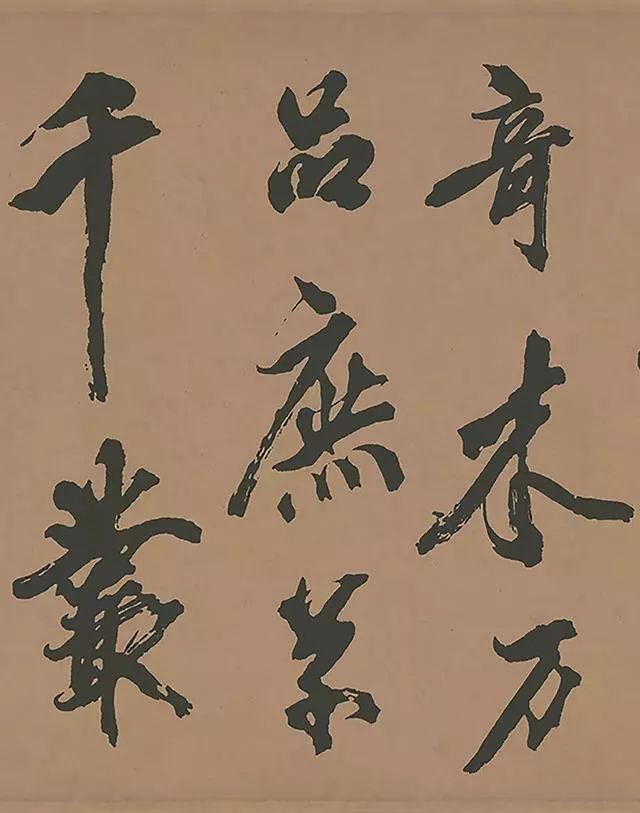 奇木万
品庶草
千叢